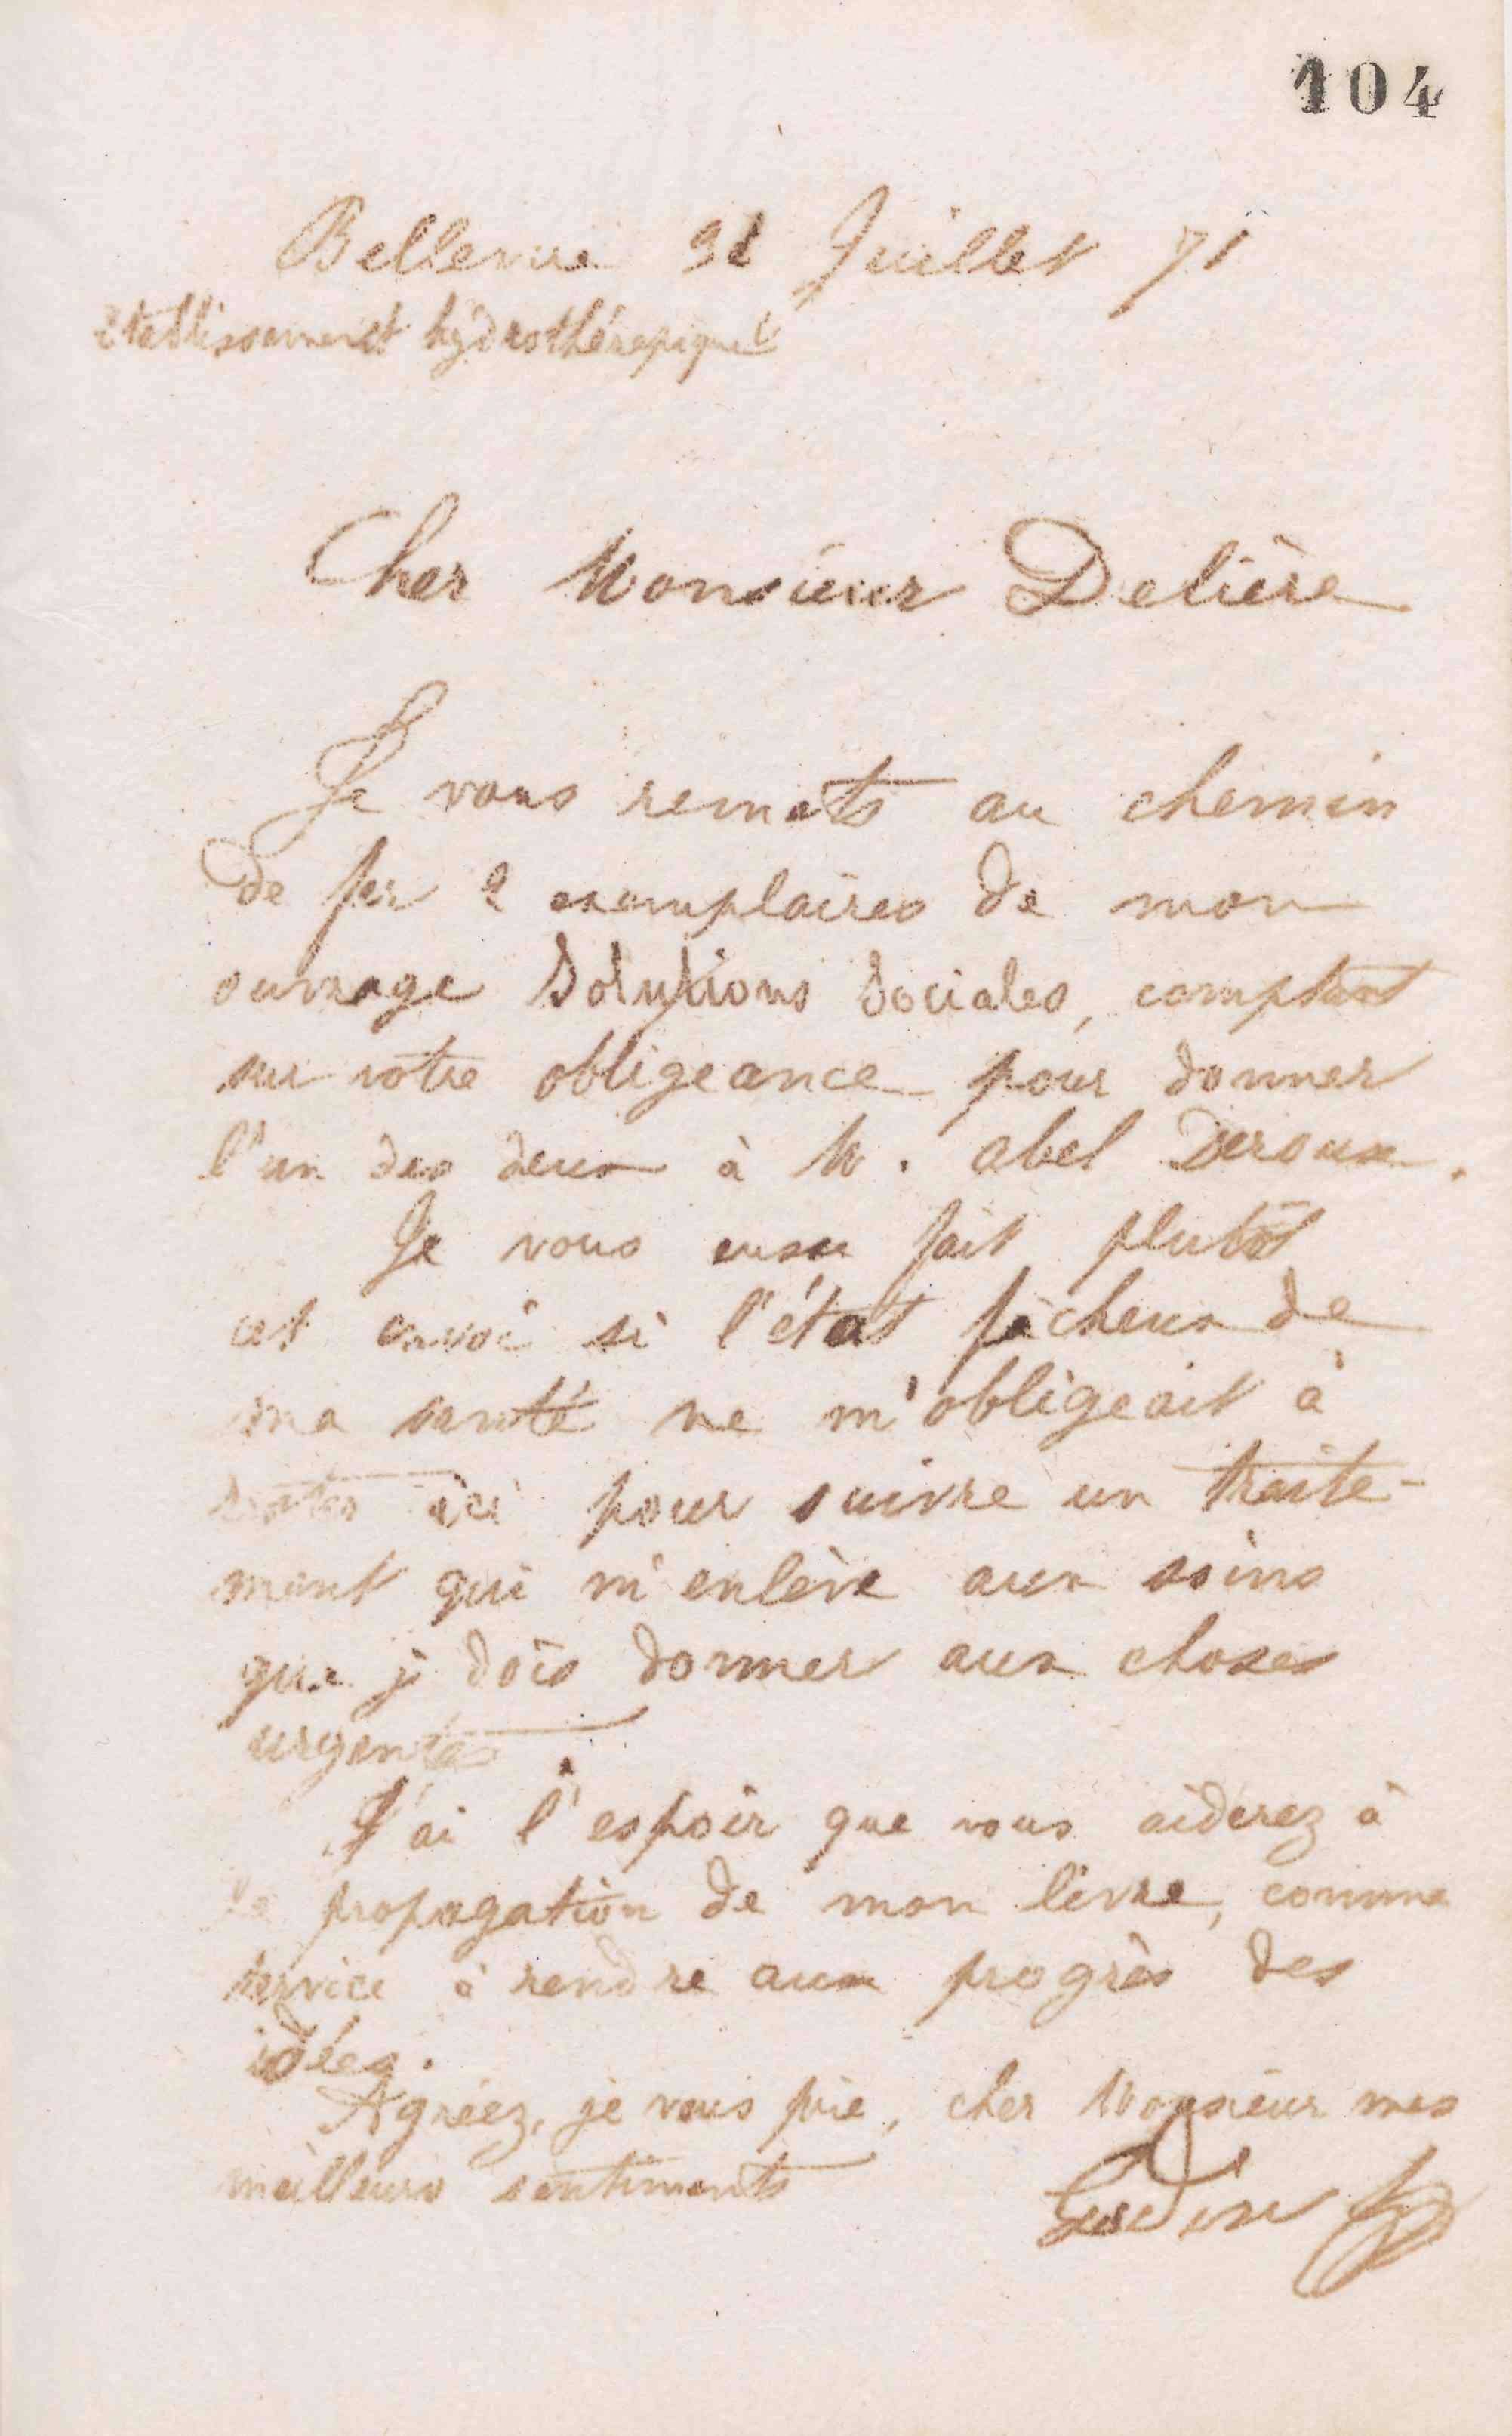 104
Bellevue 31 Juillet 71
Etablissement hydrothérapique
Cher Monsieur Delière
Je vous remets au chemin
de fer 2 exemplaires de mon
ouvrage Solutions Sociales, comptant
sur votre obligeance pour donner
l'un des deux à M. Abel Deroux.
Je vous eusse fait plutôt
cet envoi si l'état fâcheux de
ma santé ne m'obligeait à
rester ici pour suivre un traite-
ment qui m'enlève aux soins
que je dois donner aux choses
urgentes.
J'ai l'espoir que vous aiderez à
la propagation de mon livre, comme
service à rendre aux progrès des
idées.
Agréez, je vous prie, cher Monsieur mes
meilleurs sentiments
Godin